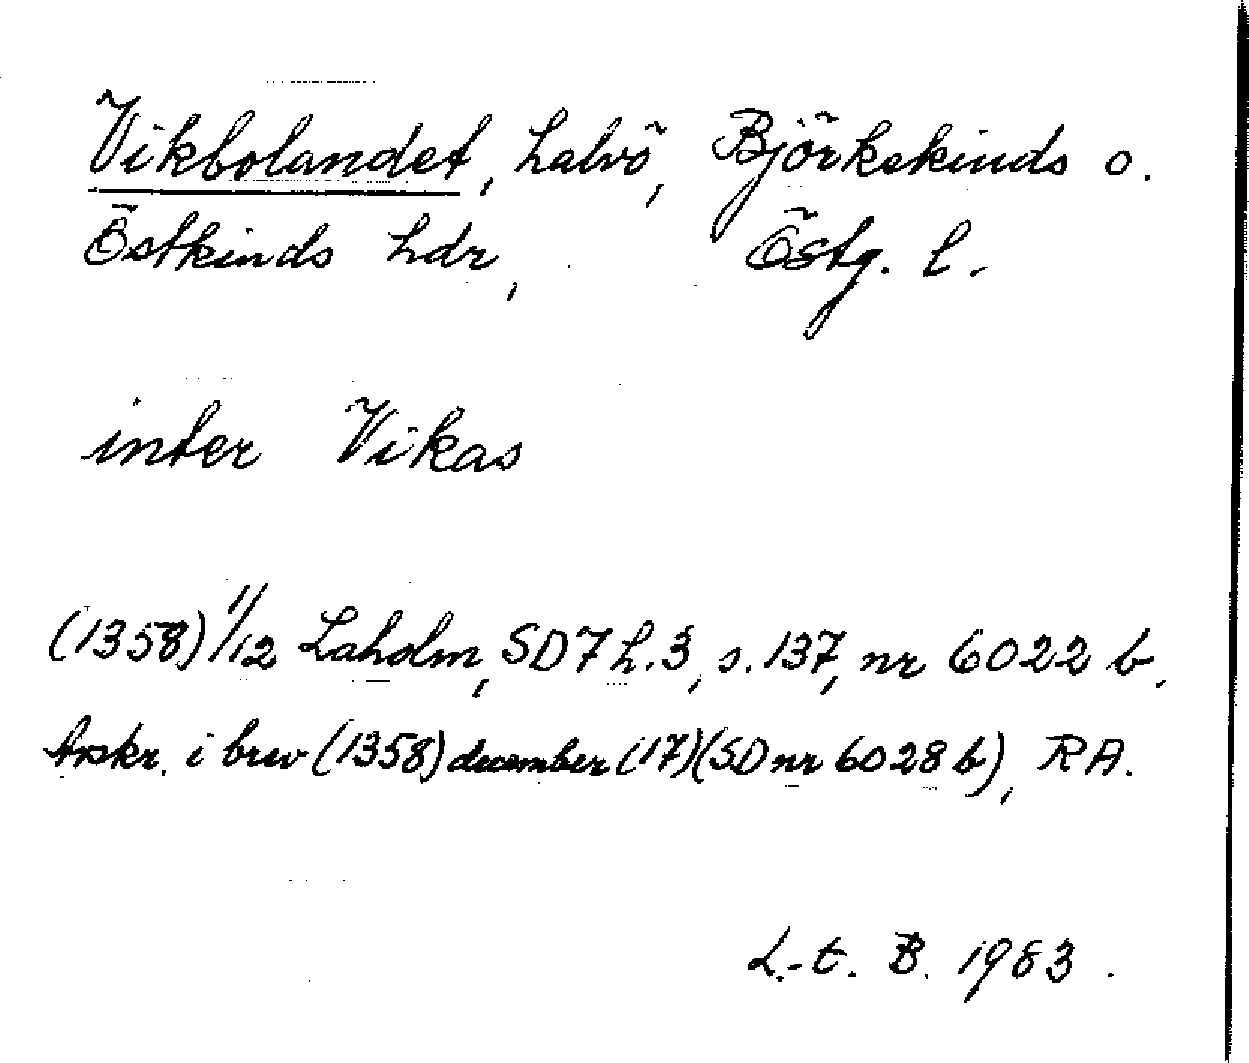 Vikbolandet, halvö, Björkekinds o.
Östkinds hdr, Östg. l.
inter Vikas
(1358) 1/12 Laholm, SD 7 h. 3, s. 137, nr 6022 b.
Avskr. i brev (1358) december (17) (SD nr 6028 b), RA.
L-t. B. 1983.